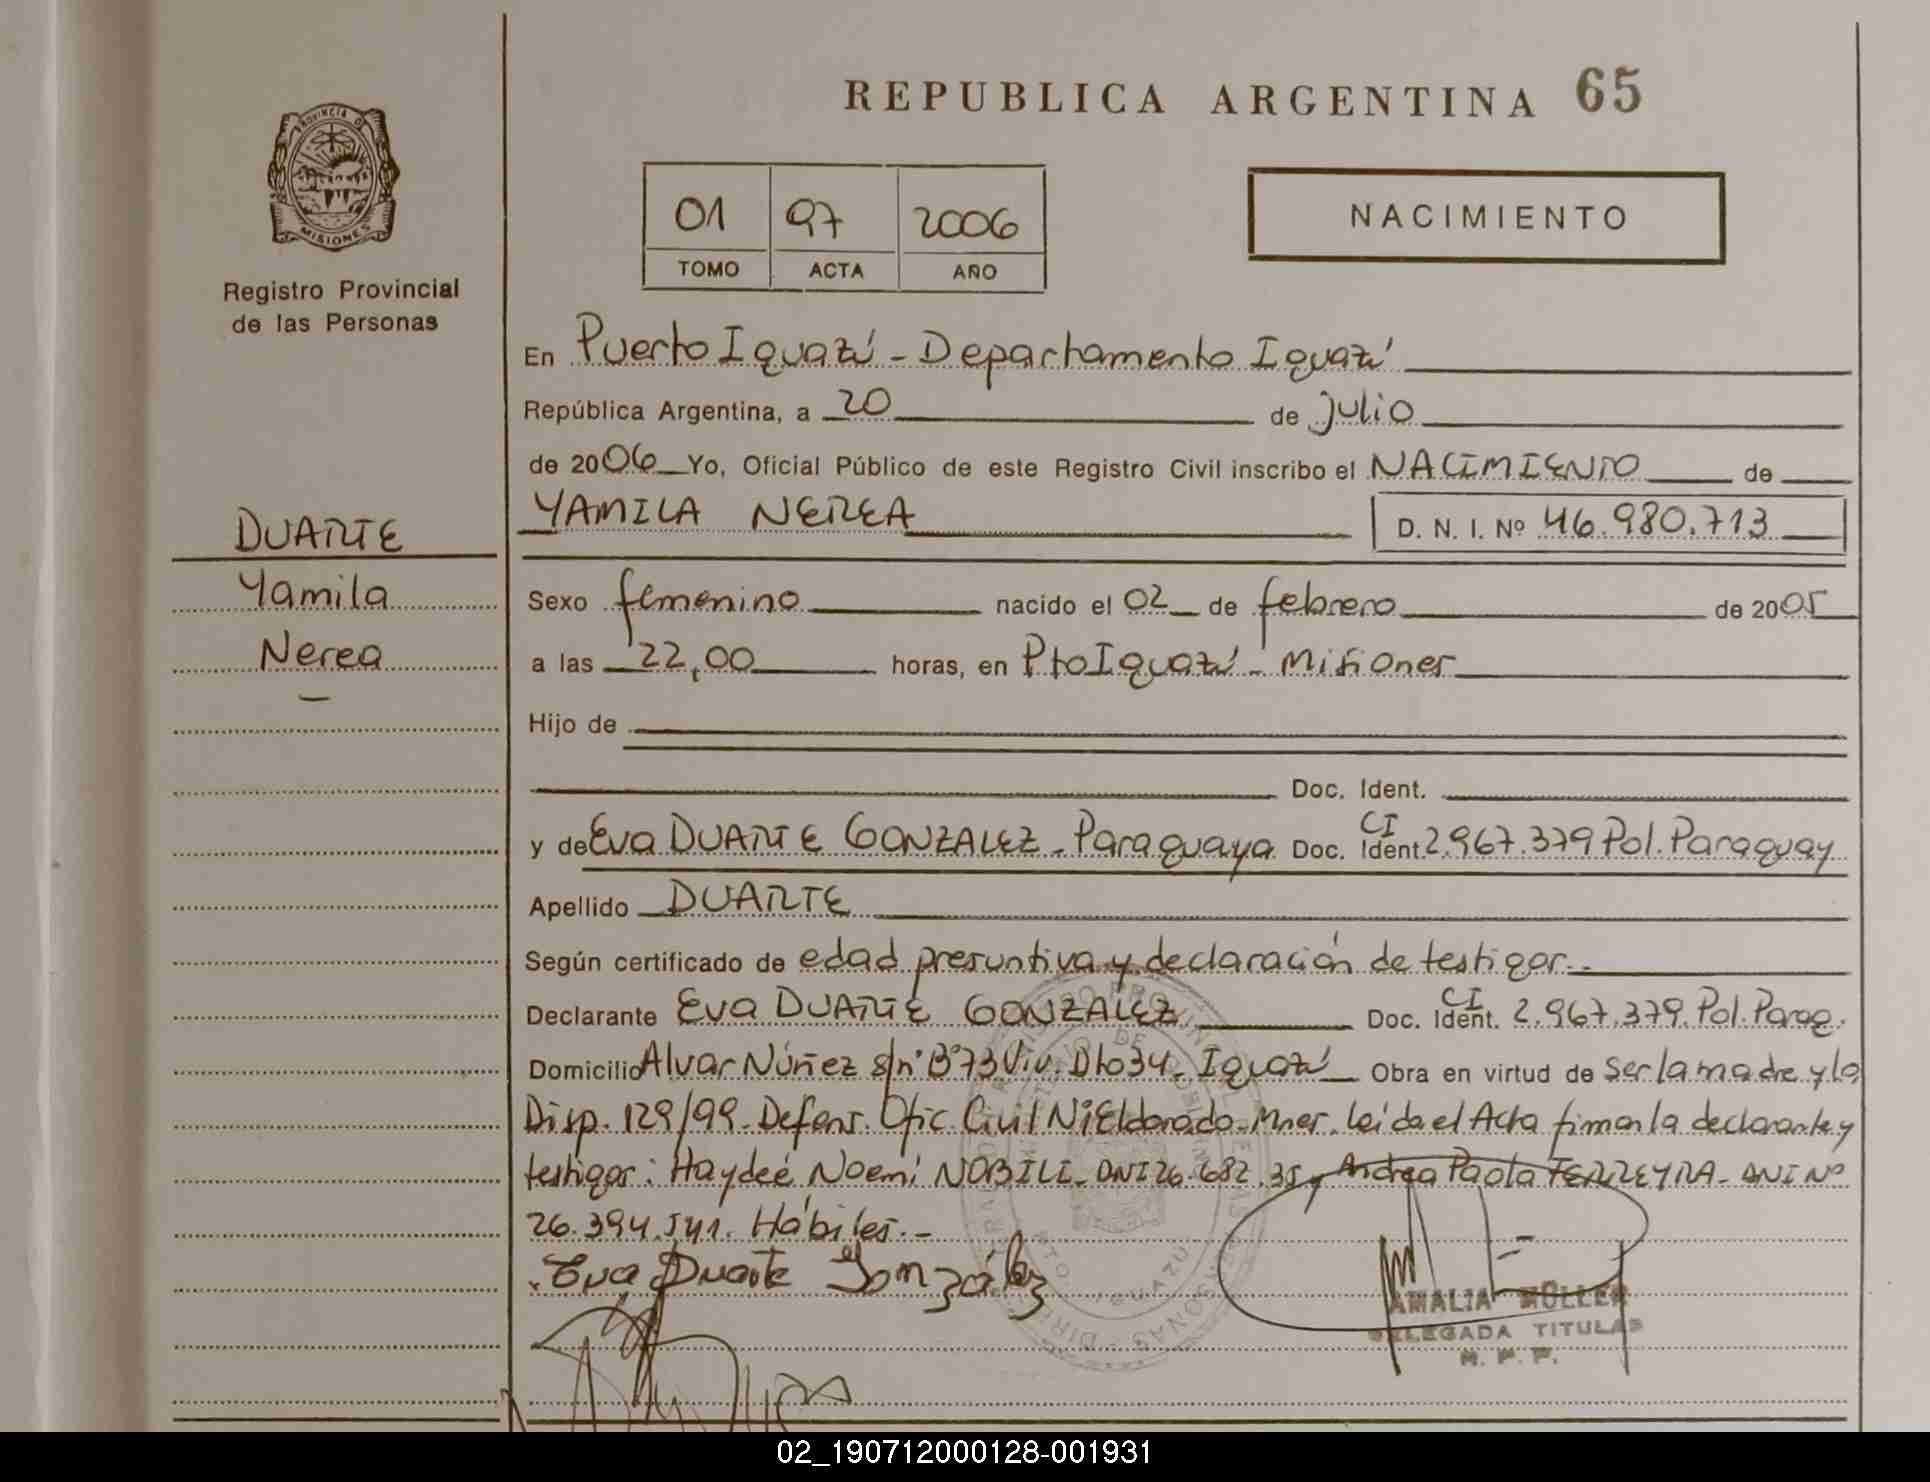 REPUBLICA ARGENTINA 65
PROVINCIA DE
MISIONES
Registro Provincial
de las Personas
01 97 2006
TOMO ACTA AÑO
NACIMIENTO
En Puerto Iguazú - Departamento Iguazú
República Argentina, a 20 de Julio
de 2006 Yo, Oficial Público de este Registro Civil inscribo el NACIMIENTO de
YAMILA NEREA D. N. I. Nº 46.980.713
DUARTE
Yamila
Nerea
Sexo femenino nacido el 02 de febrero de 2005
a las 22,00 horas, en Pto Iguazú - Misiones
Hijo de
Doc. Ident.
y de Eva DUARTE GONZALEZ - Paraguaya Doc. Ident. CI 2.967.379 Pol. Paraguay
Apellido DUARTE
Según certificado de edad presuntiva y declaración de testigos.-
Declarante Eva DUARTE GONZALEZ Doc. Ident. CI 2.967.379. Pol. Parag.
Domicilio Alvar Núñez s/nº Bº 73 Viv. Dto 34 - Iguazú Obra en virtud de ser la madre y la
Disp. 129/99 - Defens. Ofic Civil Eldorado - Mnes. Leída el Acta firman la declarante y
testigos: Haydeé Noemí NOBILI - DNI 26.682.35 y Andrea Paola FERREYRA - DNI Nº
26.394.541. Hábiles.-
Eva Duarte González
AMALIA MÜLLER
DELEGADA TITULAR
02_190712000128-001931